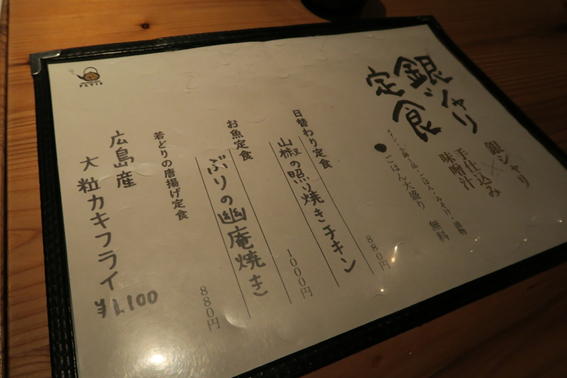 銀シャリ定食
銀シャリ
×
手仕込み
味噌汁
ごはん大盛り 無料
日替わり定食 880円
山椒の照り焼きチキン
お魚定食 1000円
ぶりの幽庵焼き
若どりの唐揚げ定食 880円
広島産
大粒カキフライ ¥1,100